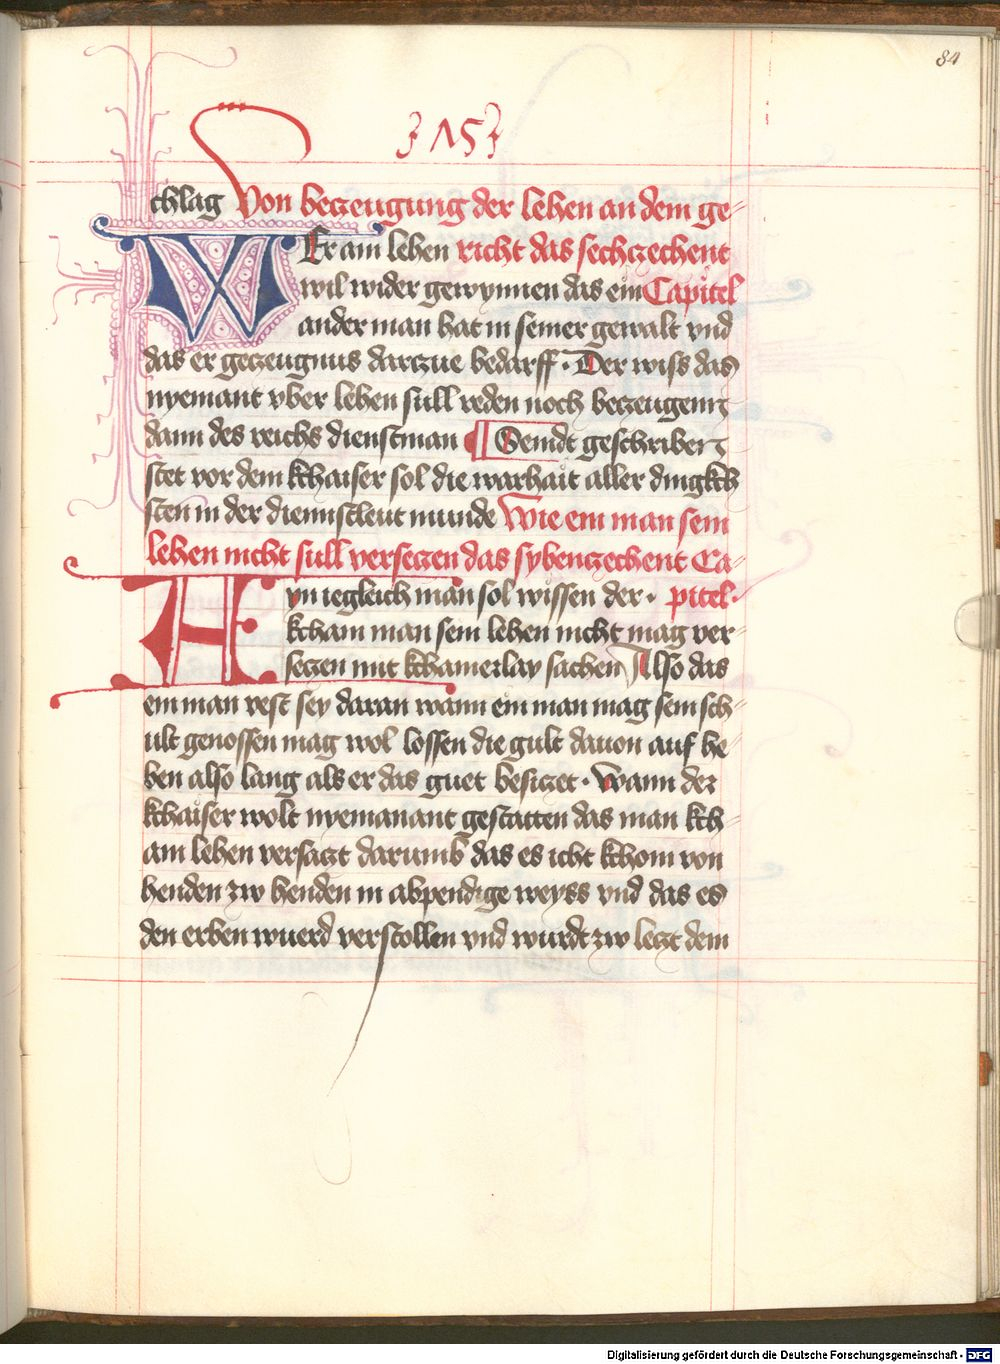 84
175
chlag Von beczeugung der lehen an dem ge-
WEr am lehen richt das sechczechent
wil wider gewynnen das ein Capitel
ander man hat in seiner gewalt vnd
das er geczeugnus darczue bedarff · Der wiss das
nyemant vber lehen sull reden noch beczeugenn
dann des reichs dienstman Seindt geschriben
stet vor dem kchaiser sol die warhait aller dingkch
sten in der diennstleut munde Wie ein man sein
lehen nicht sull verseczen das sybenczechent Ca-
AYn iegleich man sol wissen der · pitel ·
kcham man sein lehen nicht mag ver-
seczen mit kchainerlay sachen Also das
ein man vest sey daran wann ein man mag sein sch-
ult genossen mag wol lossen die gult dauon auf he-
ben also lang als er das guet besiczet · Wann der
kchaiser wolt nyemanant gestatten das man kch-
ain lehen versaczt darumb das es icht kchom von
henden zw henden in abpendige weyss vnd das es
den erben wuerd verstollen vnd wurdt zw leczt dem
Digitalisierung gefördert durch die Deutsche Forschungsgemeinschaft - DFG